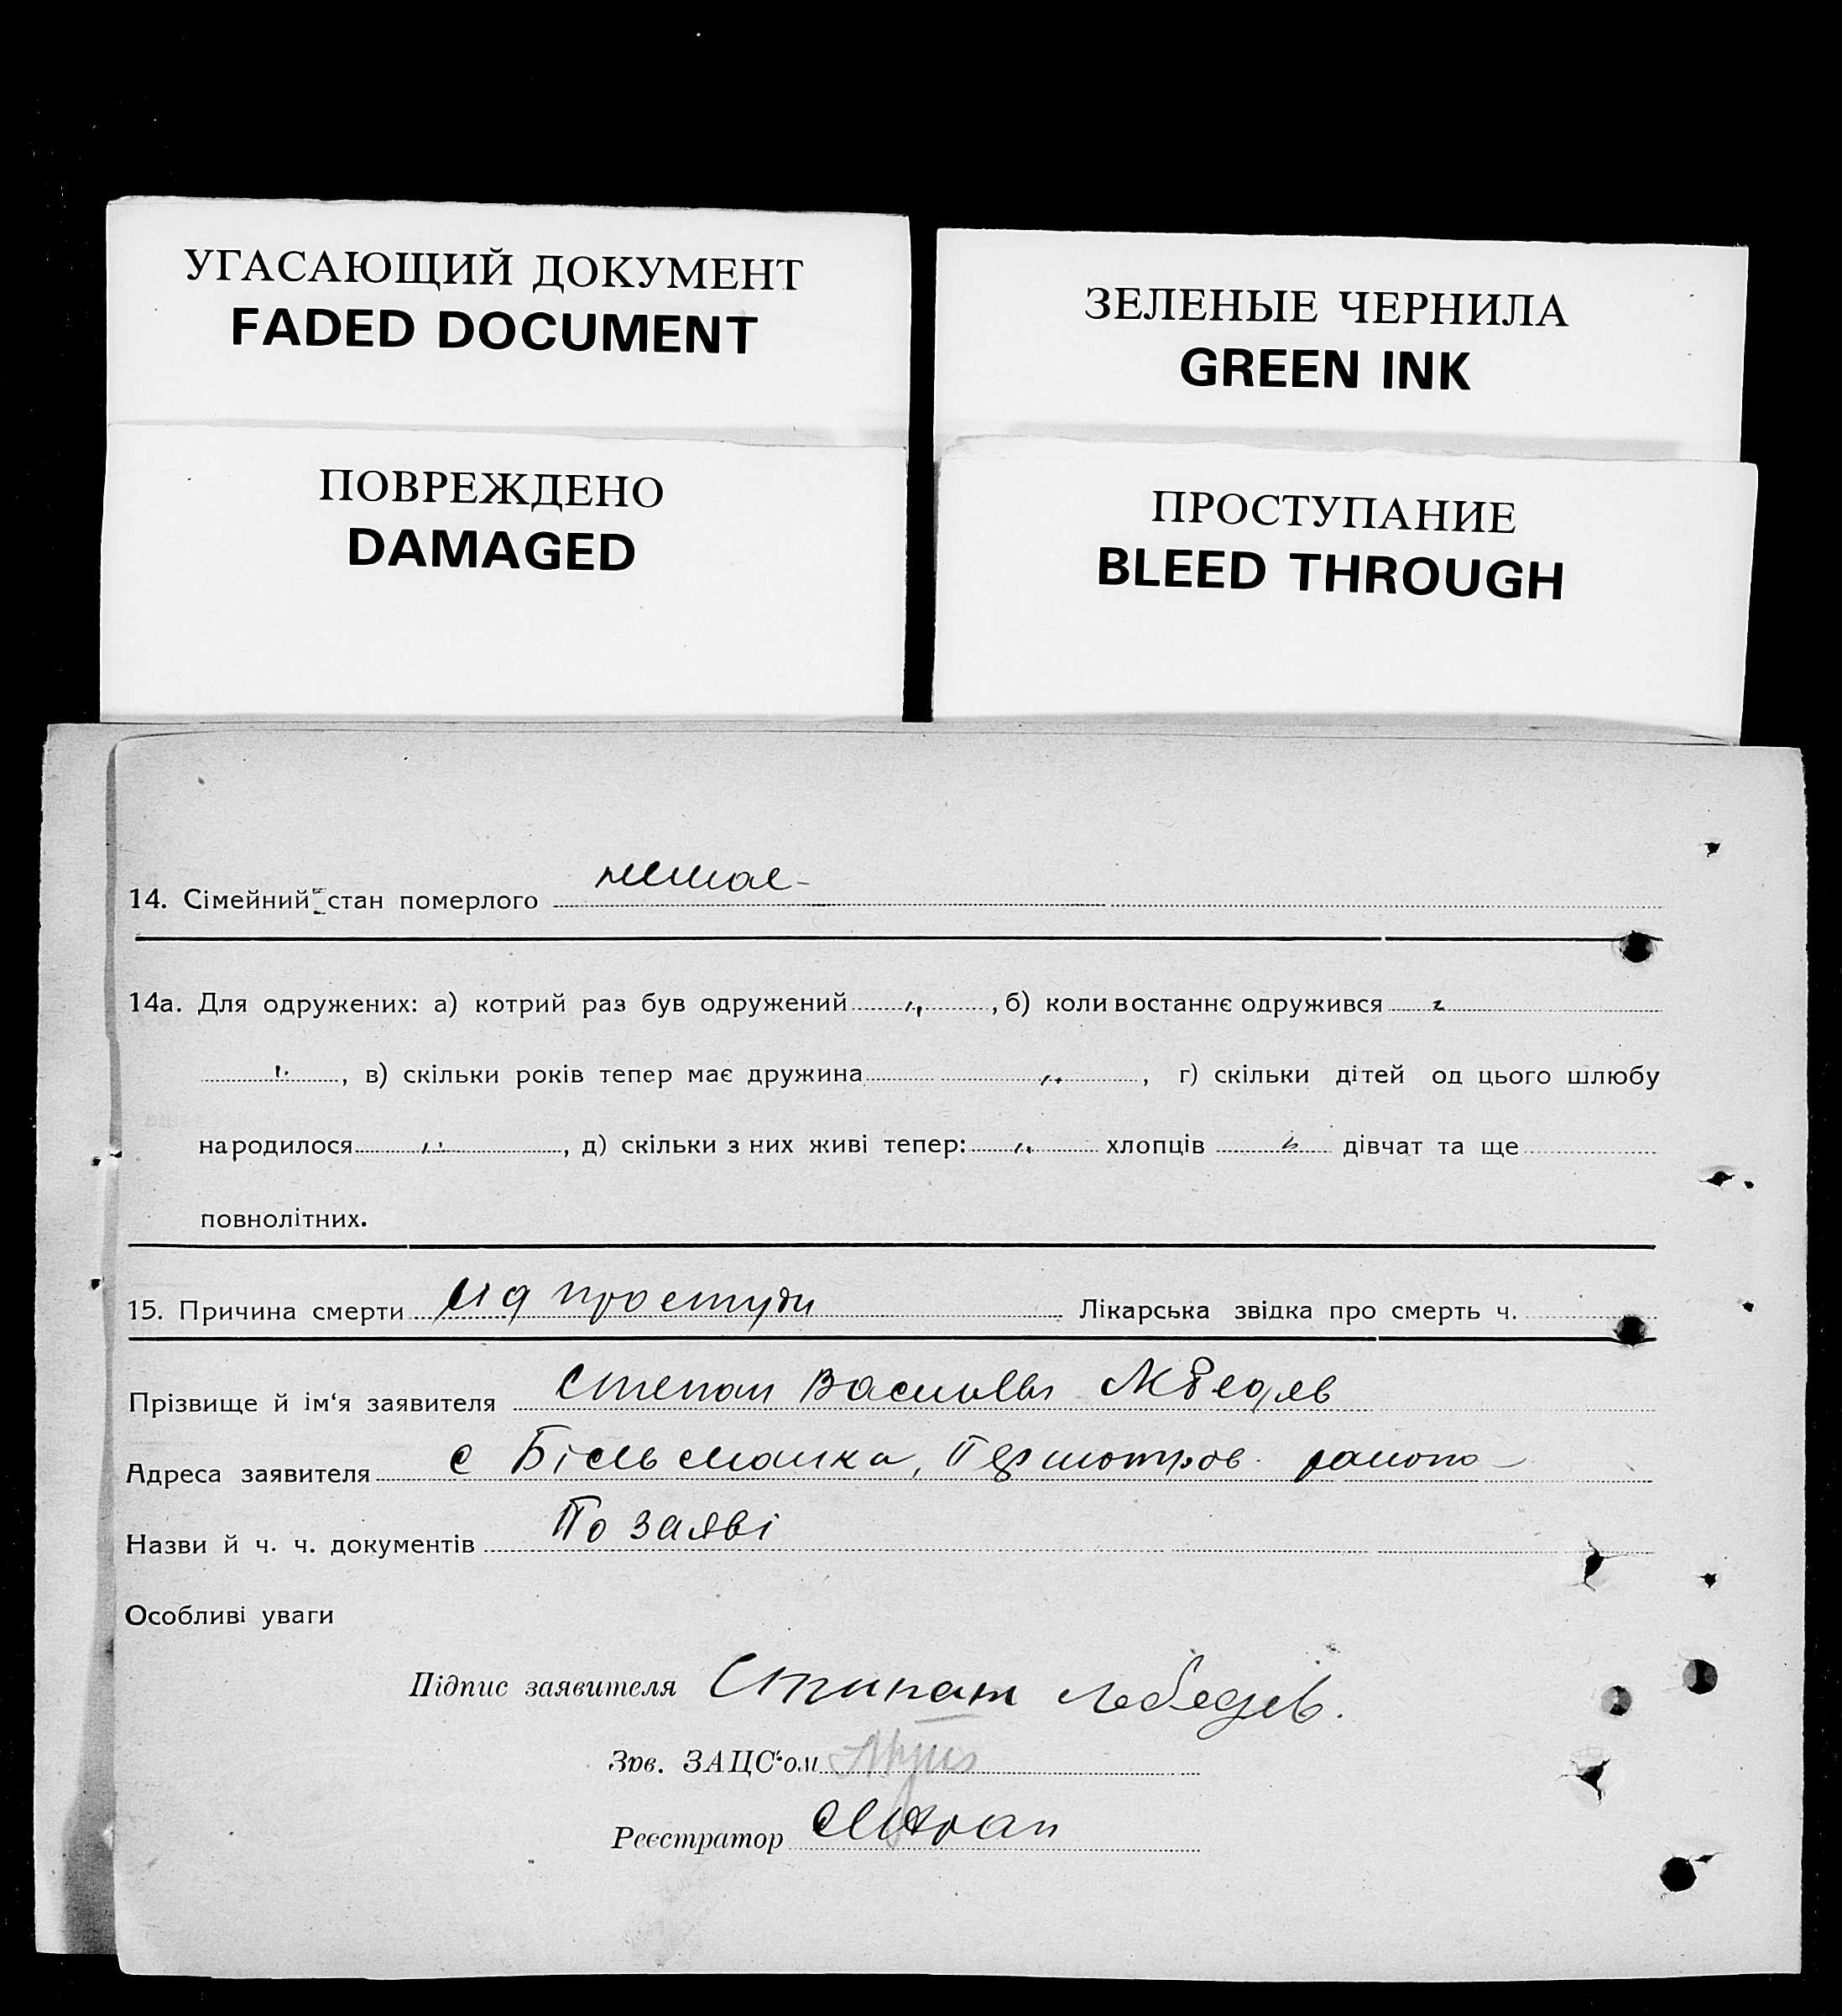 УГАСАЮЩИЙ ДОКУМЕНТ
FADED DOCUMENT
ЗЕЛЕНЫЕ ЧЕРНИЛА
GREEN INK
ПОВРЕЖДЕНО
DAMAGED
ПРОСТУПАНИЕ
BLEED THROUGH
14. Сімейний стан померлого немає-
14а. Для одружених: а) котрий раз був одружений „ , б) коли востаннє одружився
„ , в) скільки років тепер має дружина „ , г) скільки дітей од цього шлюбу
народилося „ , д) скільки з них живі тепер: „ хлопців „ дівчат та ще
повнолітних.
15. Причина смерти від простуди Лікарська звідка про смерть ч.
Прізвище й ім‘я заявителя Степан
Адреса заявителя с Більманка,
Назви й ч. ч. документів По заяві
Особливі уваги
Підпис заявителя Стипан лебедев.
Зав. ЗАЦС‘ом
Реєстратор